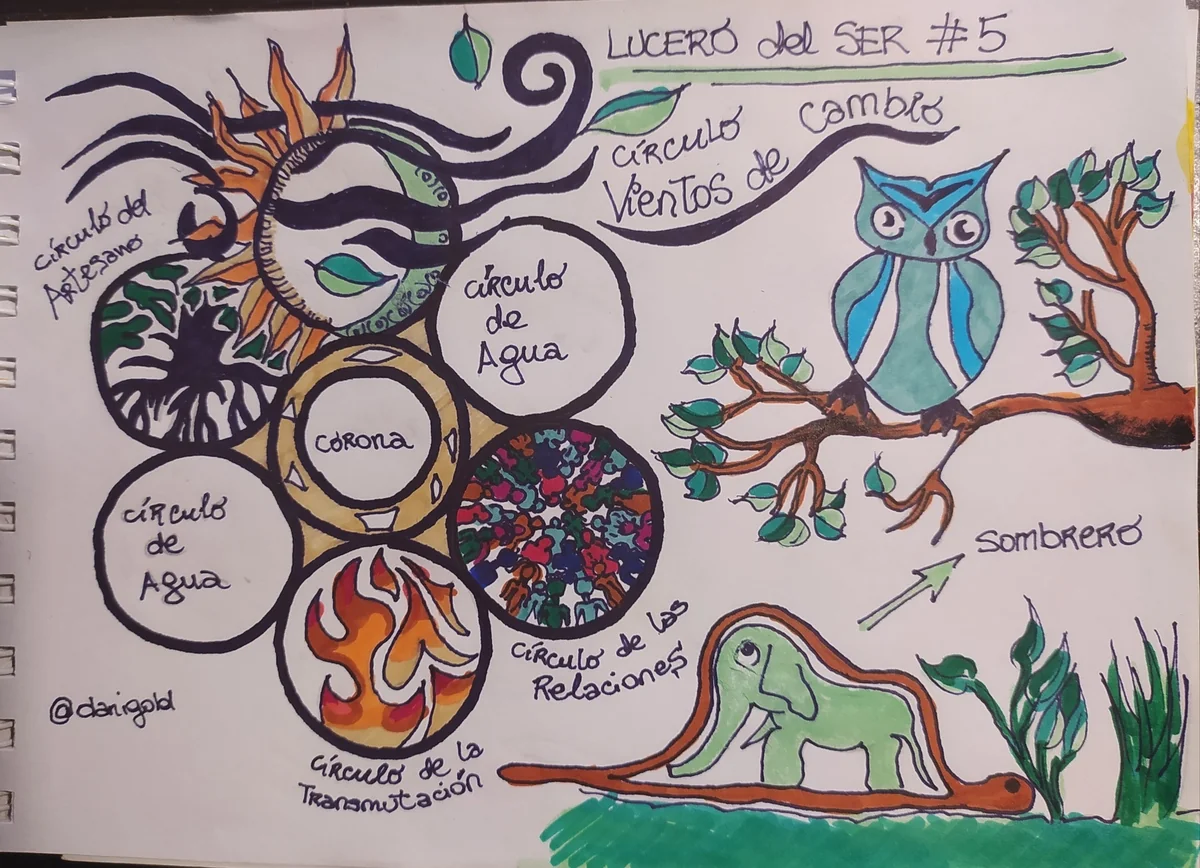 LUCERO del SER #5
Círculo
Vientos de Cambio
Círculo del
Artesano
Círculo
de
Agua
Corona
Círculo
de
Agua
Círculo de las
Relaciones
Círculo de la
Transmutación
Sombrero
@danigold